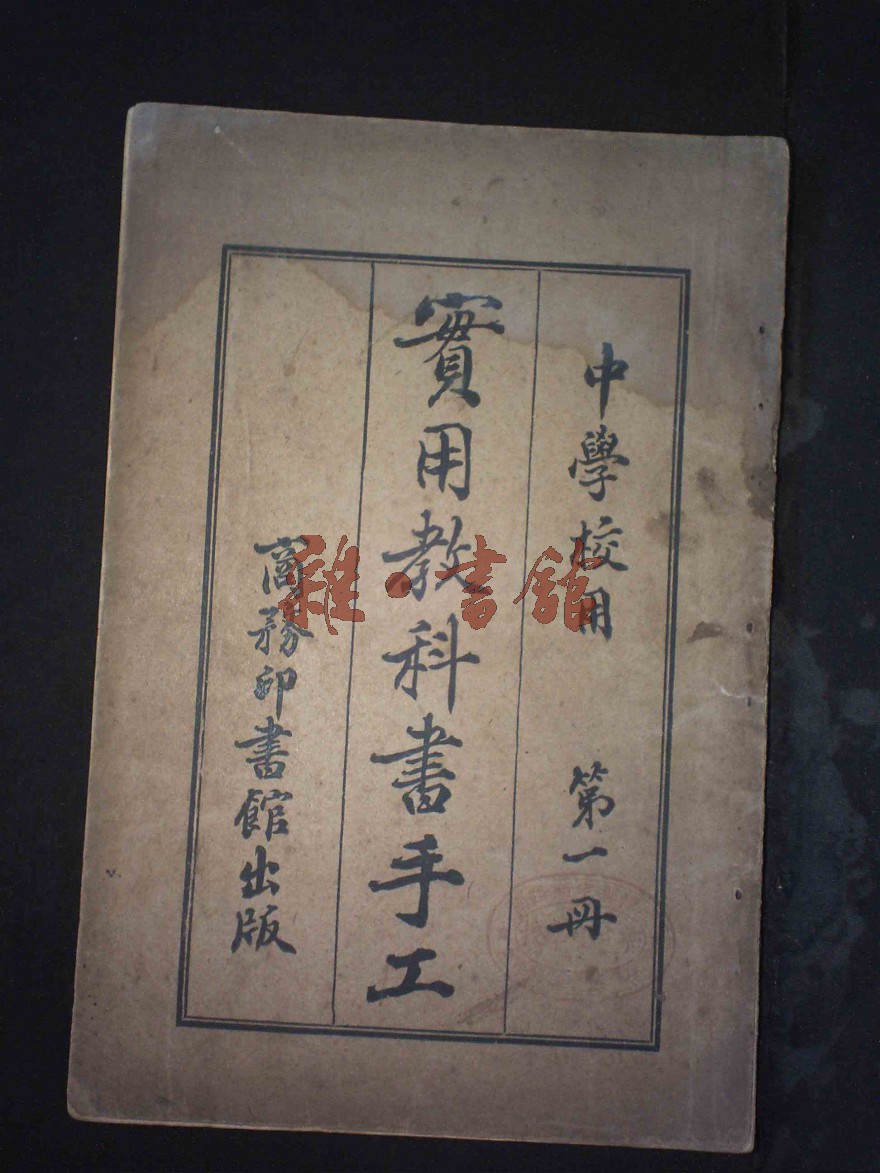 中學校用 第一冊
實用教科書手工
商務印書館出版
雜·書館